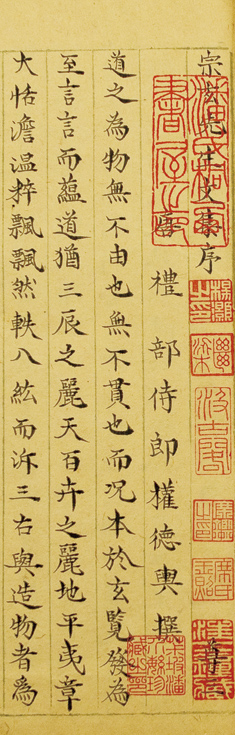 宗玄先生文集序
唐 禮部侍郎權德輿撰
道之為物無不由也無不貫也而況本於玄覽發為
至言言而蘊道猶三辰之麗天百卉之麗地平夷章
大恬澹温粹飄飄然軼八紘而泝三古與造物者為